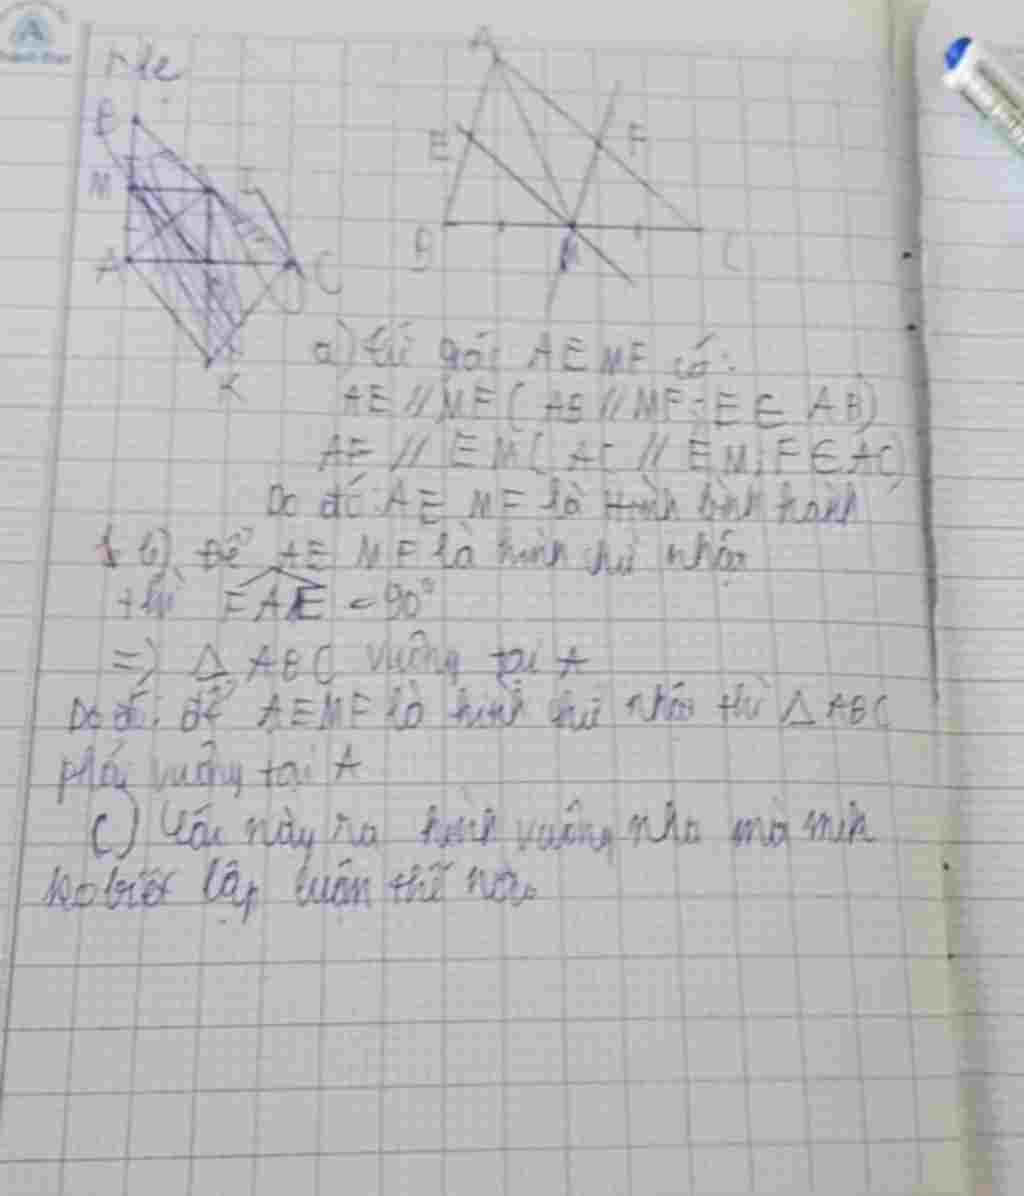 A
B
M
I
A
C
K
A
E
F
B
M
C
a) tứ giác AEMF có:
AE // MF ( AB // MF; E ∈ AB)
AF // EM ( AC // EM; F ∈ AC)
Do đó: AEMF là Hình bình hành
b) Để AEMF là hình chữ nhật
thì FAE = 90°
=> △ ABC vuông tại A
Do đó: để AEMF là hình chữ nhật thì △ ABC
phải vuông tại A
C) Câu này ra hình vuông nha mà mình
ko biết lập luận thế nào.